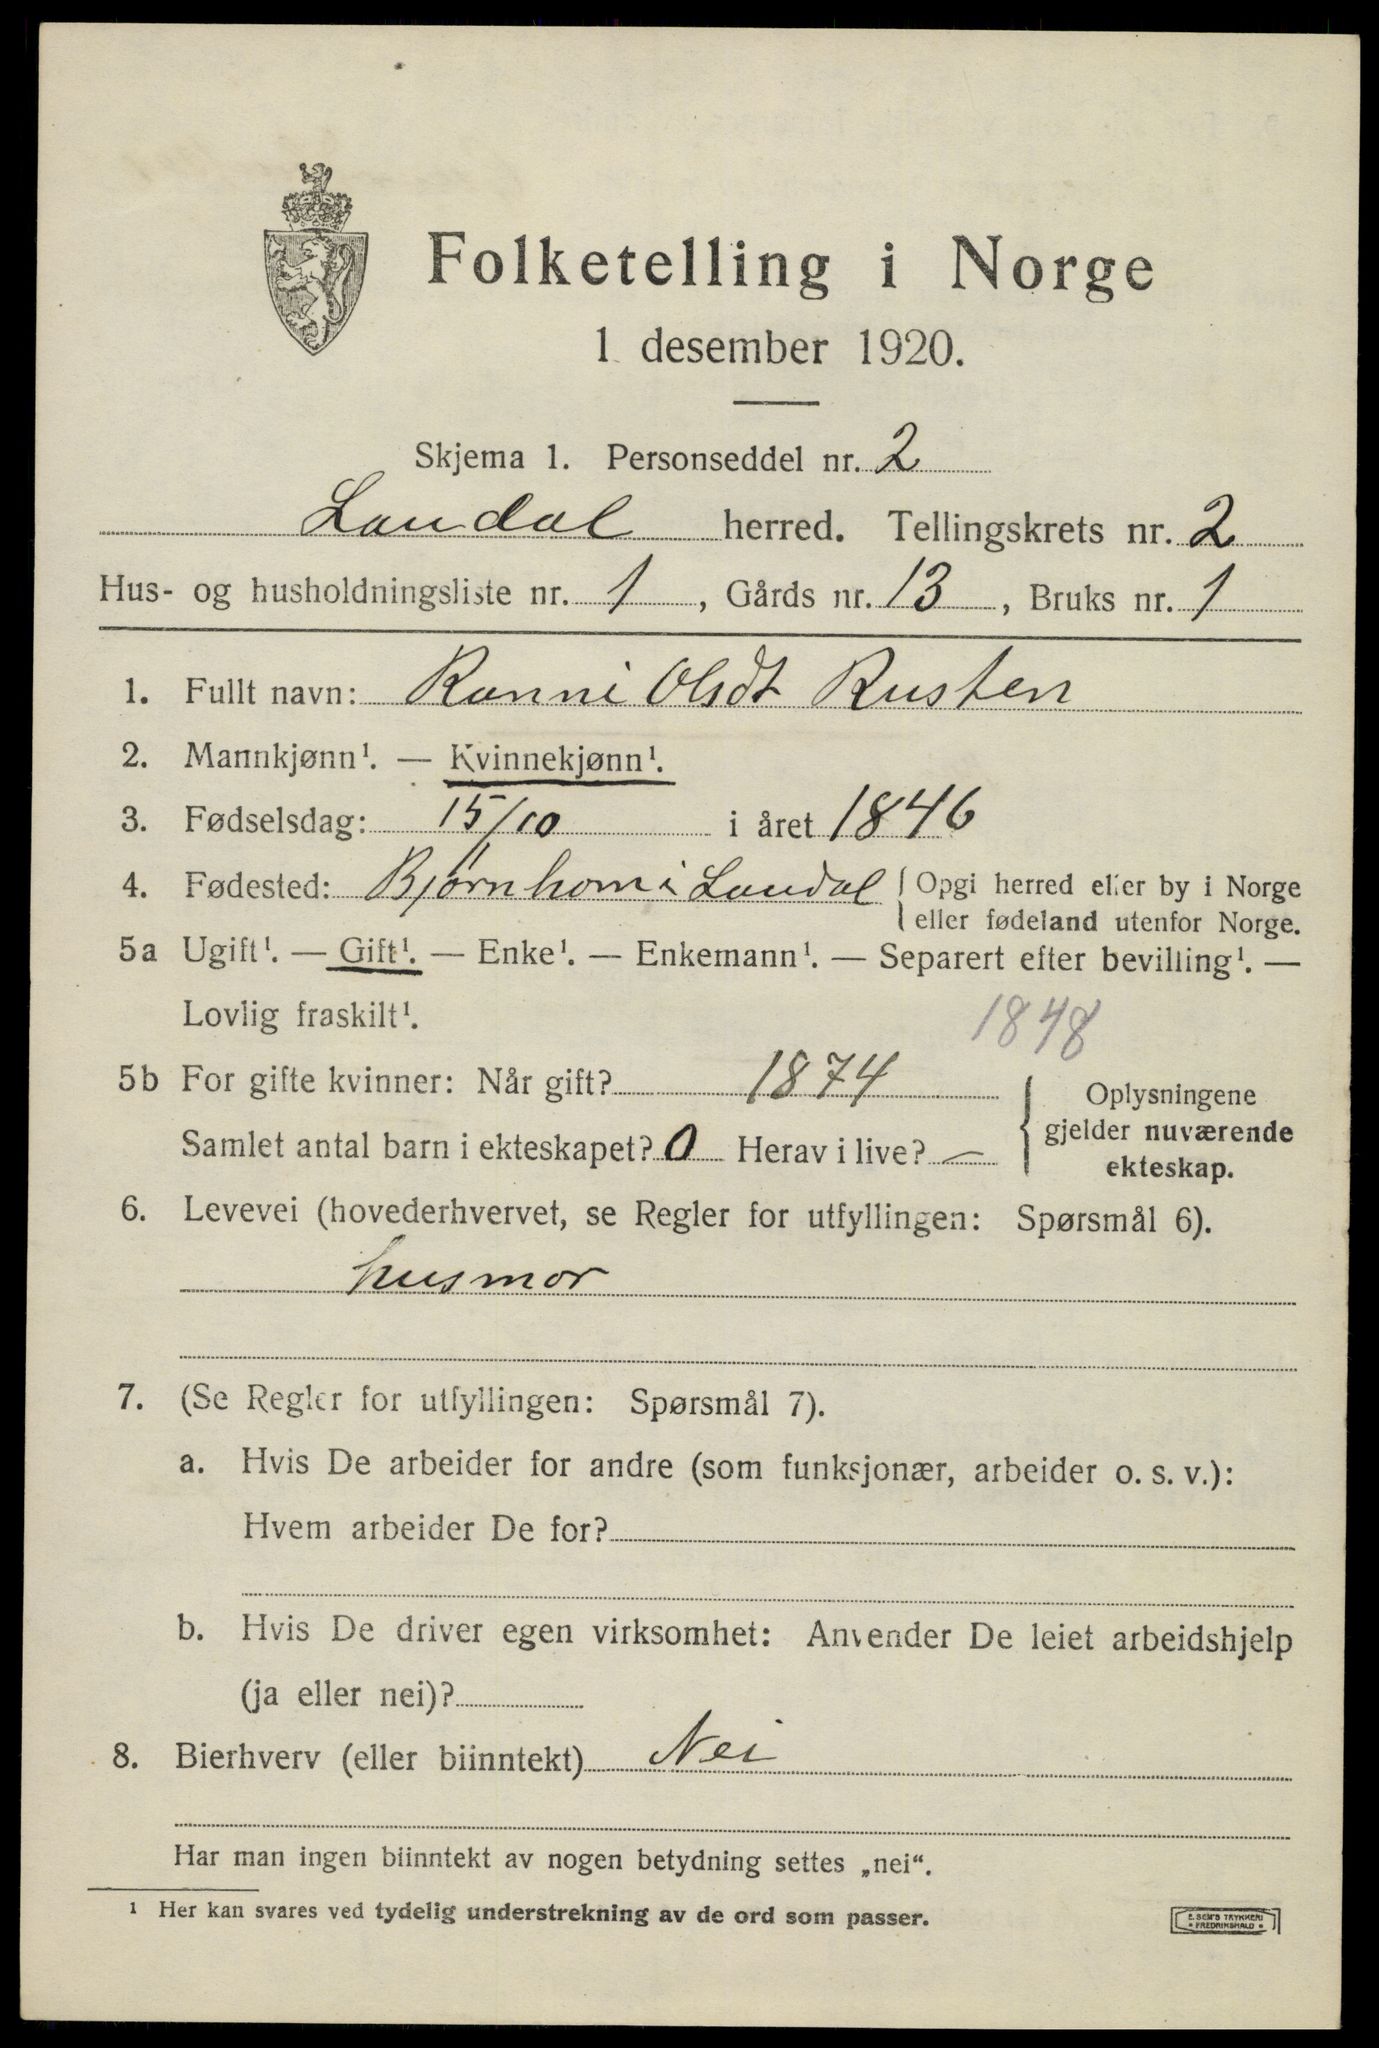 Folketelling i Norge
1 desember 1920.
Skjema 1. Personseddel nr. 2
Laudal herred. Tellingskrets nr. 2
Hus- og husholdningsliste nr. 1, Gårds nr. 13, Bruks nr. 1
1. Fullt navn: Ranni Olsdt Rusten
2. Mannkjønn¹. — Kvinnekjønn¹.
3. Fødselsdag: 15/10 i året 1846
4. Fødested: Bjørnhom i Laudal { Opgi herred eller by i Norge
eller fødeland utenfor Norge.
5a Ugift¹. — Gift¹. — Enke¹. — Enkemann¹. — Separert efter bevilling¹. —
Lovlig fraskilt¹. 1848
5b For gifte kvinner: Når gift? 1874 Oplysningene
gjelder nuværende
Samlet antal barn i ekteskapet? 0 Herav i live? — ekteskap.
6. Levevei (hovederhvervet, se Regler for utfyllingen: Spørsmål 6).
husmor
7. (Se Regler for utfyllingen: Spørsmål 7).
a. Hvis De arbeider for andre (som funksjonær, arbeider o. s. v.):
Hvem arbeider De for?
b. Hvis De driver egen virksomhet: Anvender De leiet arbeidshjelp
(ja eller nei)?
8. Bierhverv (eller biinntekt) Nei
Har man ingen biinntekt av nogen betydning settes „nei“.
¹ Her kan svares ved tydelig understrekning av de ord som passer.
E. SEM'S TRYKKERI
• FREDRIKSHALD •